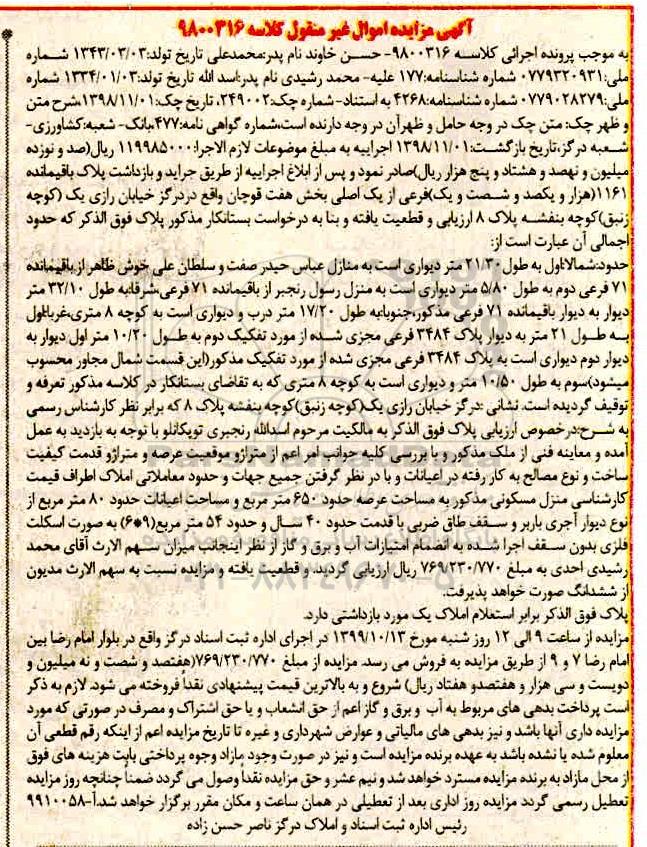 آگهی مزایده اموال غیر منقول کلاسه ۹۸۰۰۳۱۶
به موجب پرونده اجرائی کلاسه ۹۸۰۰۳۱۶- حسن خاوند نام پدر:محمدعلی تاریخ تولد:۱۳۴۳/۰۳/۰۳ شماره
ملی:۰۷۷۹۳۲۰۹۳۱ شماره شناسنامه:۱۷۷ علیه- محمد رشیدی نام پدر:اسد الله تاریخ تولد:۱۳۳۴/۰۱/۰۳ شماره
ملی:۰۷۷۹۰۲۸۲۷۹ شماره شناسنامه:۴۲۶۸ به استناد- شماره چک:۲۴۹۰۰۲، تاریخ چک:۱۳۹۸/۱۱/۰۱،شرح متن
و ظهر چک: متن چک در وجه حامل و ظهرآن در وجه دارنده است،شماره گواهی نامه:۴۷۷،بانک- شعبه:کشاورزی-
شعبه درگز،تاریخ بازگشت:۱۳۹۸/۱۱/۰۱ اجراییه به مبلغ موضوعات لازم الاجرا:۱۱۹۹۸۵۰۰۰ ریال(صد و نوزده
میلیون و نهصد و هشتاد و پنج هزار ریال)صادر نمود و پس از ابلاغ اجراییه از طریق جراید و بازداشت پلاک باقیمانده
۱۱۶۱(هزار و یکصد و شصت و یک)فرعی از یک اصلی بخش هفت قوچان واقع دردرگز خیابان رازی یک (کوچه
زنبق)کوچه بنفشه پلاک ۸ ارزیابی و قطعیت یافته و بنا به درخواست بستانکار مذکور پلاک فوق الذکر که حدود
اجمالی آن عبارت است از:
حدود:شمالا:اول به طول ۲۱/۳۰ متر دیواری است به منازل عباس حیدر صفت و سلطان علی خوش ظاهر از باقیمانده
۷۱ فرعی دوم به طول ۵/۸۰ متر دیواری است به منزل رسول رنجبر از باقیمانده ۷۱ فرعی،شرقا:به طول ۳۲/۱۰ متر
دیوار به دیوار باقیمانده ۷۱ فرعی مذکور،جنوبا:به طول ۱۷/۲۰ متر درب و دیواری است به کوچه ۸ متری،غربا:اول
به طول ۲۱ متر به دیوار پلاک ۳۴۸۴ فرعی مجزی شده از مورد تفکیک دوم به طول ۱۰/۲۰ متر اول دیوار به
دیوار دوم دیواری است به پلاک ۳۴۸۴ فرعی مجزی شده از مورد تفکیک مذکور(این قسمت شمال مجاور محسوب
میشود)سوم به طول ۱۰/۵۰ متر و دیواری است به کوچه ۸ متری که به تقاضای بستانکار در کلاسه مذکور تعرفه و
توقیف گردیده است. نشانی :درگز خیابان رازی یک(کوچه زنبق)کوچه بنفشه پلاک ۸ که برابر نظر کارشناس رسمی
به شرح:درخصوص ارزیابی پلاک فوق الذکر به مالکیت مرحوم اسدالله رنجبری توپکانلو با توجه به بازدید به عمل
آمده و معاینه فنی از ملک مذکور و با بررسی کلیه جوانب امر اعم از متراژو موقعیت عرصه و متراژو قدمت کیفیت
ساخت و نوع مصالح به کار رفته در اعیانات و با در نظر گرفتن جمیع جهات و حدود معاملاتی املاک اطراف قیمت
کارشناسی منزل مسکونی مذکور به مساحت عرصه حدود ۶۵۰ متر مربع و مساحت اعیانات حدود ۸۰ متر مربع از
نوع دیوار آجری باربر و سقف طاق ضربی با قدمت حدود ۴۰ سال و حدود ۵۴ متر مربع(۹*۶) به صورت اسکلت
فلزی بدون سقف اجرا شده به انضمام امتیازات آب و برق و گاز از نظر اینجانب میزان سهم الارث آقای محمد
رشیدی احدی به مبلغ ۷۶۹/۲۳۰/۷۷۰ ریال ارزیابی گردید. و قطعیت یافته و مزایده نسبت به سهم الارث مدیون
از ششدانگ صورت خواهد پذیرفت.
پلاک فوق الذکر برابر استعلام املاک یک مورد بازداشتی دارد.
مزایده از ساعت ۹ الی ۱۲ روز شنبه مورخ ۱۳۹۹/۱۰/۱۳ در اجرای اداره ثبت اسناد درگز واقع در بلوار امام رضا بین
امام رضا ۷ و ۹ از طریق مزایده به فروش می رسد. مزایده از مبلغ ۷۶۹/۲۳۰/۷۷۰(هفتصد و شصت و نه میلیون و
دویست و سی هزار و هفتصدو هفتاد ریال) شروع و به بالاترین قیمت پیشنهادی نقداً فروخته می شود. لازم به ذکر
است پرداخت بدهی های مربوط به آب و برق و گاز اعم از حق انشعاب و یا حق اشتراک و مصرف در صورتی که مورد
مزایده داری آنها باشد و نیز بدهی های مالیاتی و عوارض شهرداری و غیره تا تاریخ مزایده اعم از اینکه رقم قطعی آن
معلوم شده یا نشده باشد به عهده برنده مزایده است و نیز در صورت وجود مازاد وجوه پرداختی بابت هزینه های فوق
از محل مازاد به برنده مزایده مسترد خواهد شد و نیم عشر و حق مزایده نقداً وصول می گردد ضمناً چنانچه روز مزایده
تعطیل رسمی گردد مزایده روز اداری بعد از تعطیلی در همان ساعت و مکان مقرر برگزار خواهد شد.آ-۹۹۱۰۰۵۸
رئیس اداره ثبت اسناد و املاک درگز ناصر حسن زاده